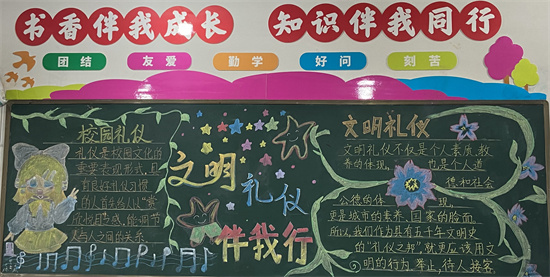 书香伴我成长 知识伴我同行
团结 友爱 勤学 好问 刻苦
校园礼仪
礼仪是校园文化的
重要表现形式,且
育良好礼仪习惯
的人首先给人以“赏
心悦目”感,能调节
人与人之间的关系
文明
礼仪
伴我行
文明礼仪
文明礼仪不仅是个人素质,教
养的体现, 也是个人道
德和社会
公德的体 现,
更是城市的素养、国家的脸面.
所以,我们作为具有五千年文明史
的“礼仪之邦”,就更应该用文
明的行为 举止,待人 接客